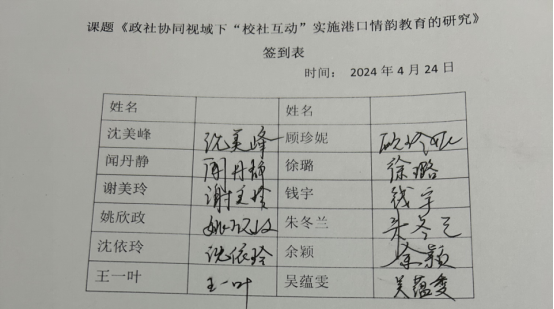 课题《政社协同视域下“校社互动”实施港口情韵教育的研究》
签到表
时间： 2024 年 4 月 24 日
姓名 姓名
沈美峰 沈美峰 顾珍妮 顾珍妮
闻丹静 闻丹静 徐璐 徐璐
谢美玲 谢美玲 钱宇 钱宇
姚欣政 姚欣政 朱冬兰 朱冬兰
沈依玲 沈依玲 余颖 余颖
王一叶 王一叶 吴蕴雯 吴蕴雯